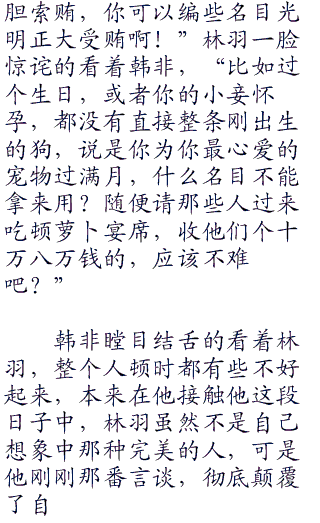 胆索贿，你可以编些名目光
明正大受贿啊！”林羽一脸
惊诧的看着韩非，“比如过
个生日，或者你的小妾怀
孕，都没有直接整条刚出生
的狗，说是你为你最心爱的
宠物过满月，什么名目不能
拿来用？随便请那些人过来
吃顿萝卜宴席，收他们个十
万八万钱的，应该不难
吧？”
韩非瞠目结舌的看着林
羽，整个人顿时都有些不好
起来，本来在他接触他这段
日子中，林羽虽然不是自己
想象中那种完美的人，可是
他刚刚那番言谈，彻底颠覆
了自